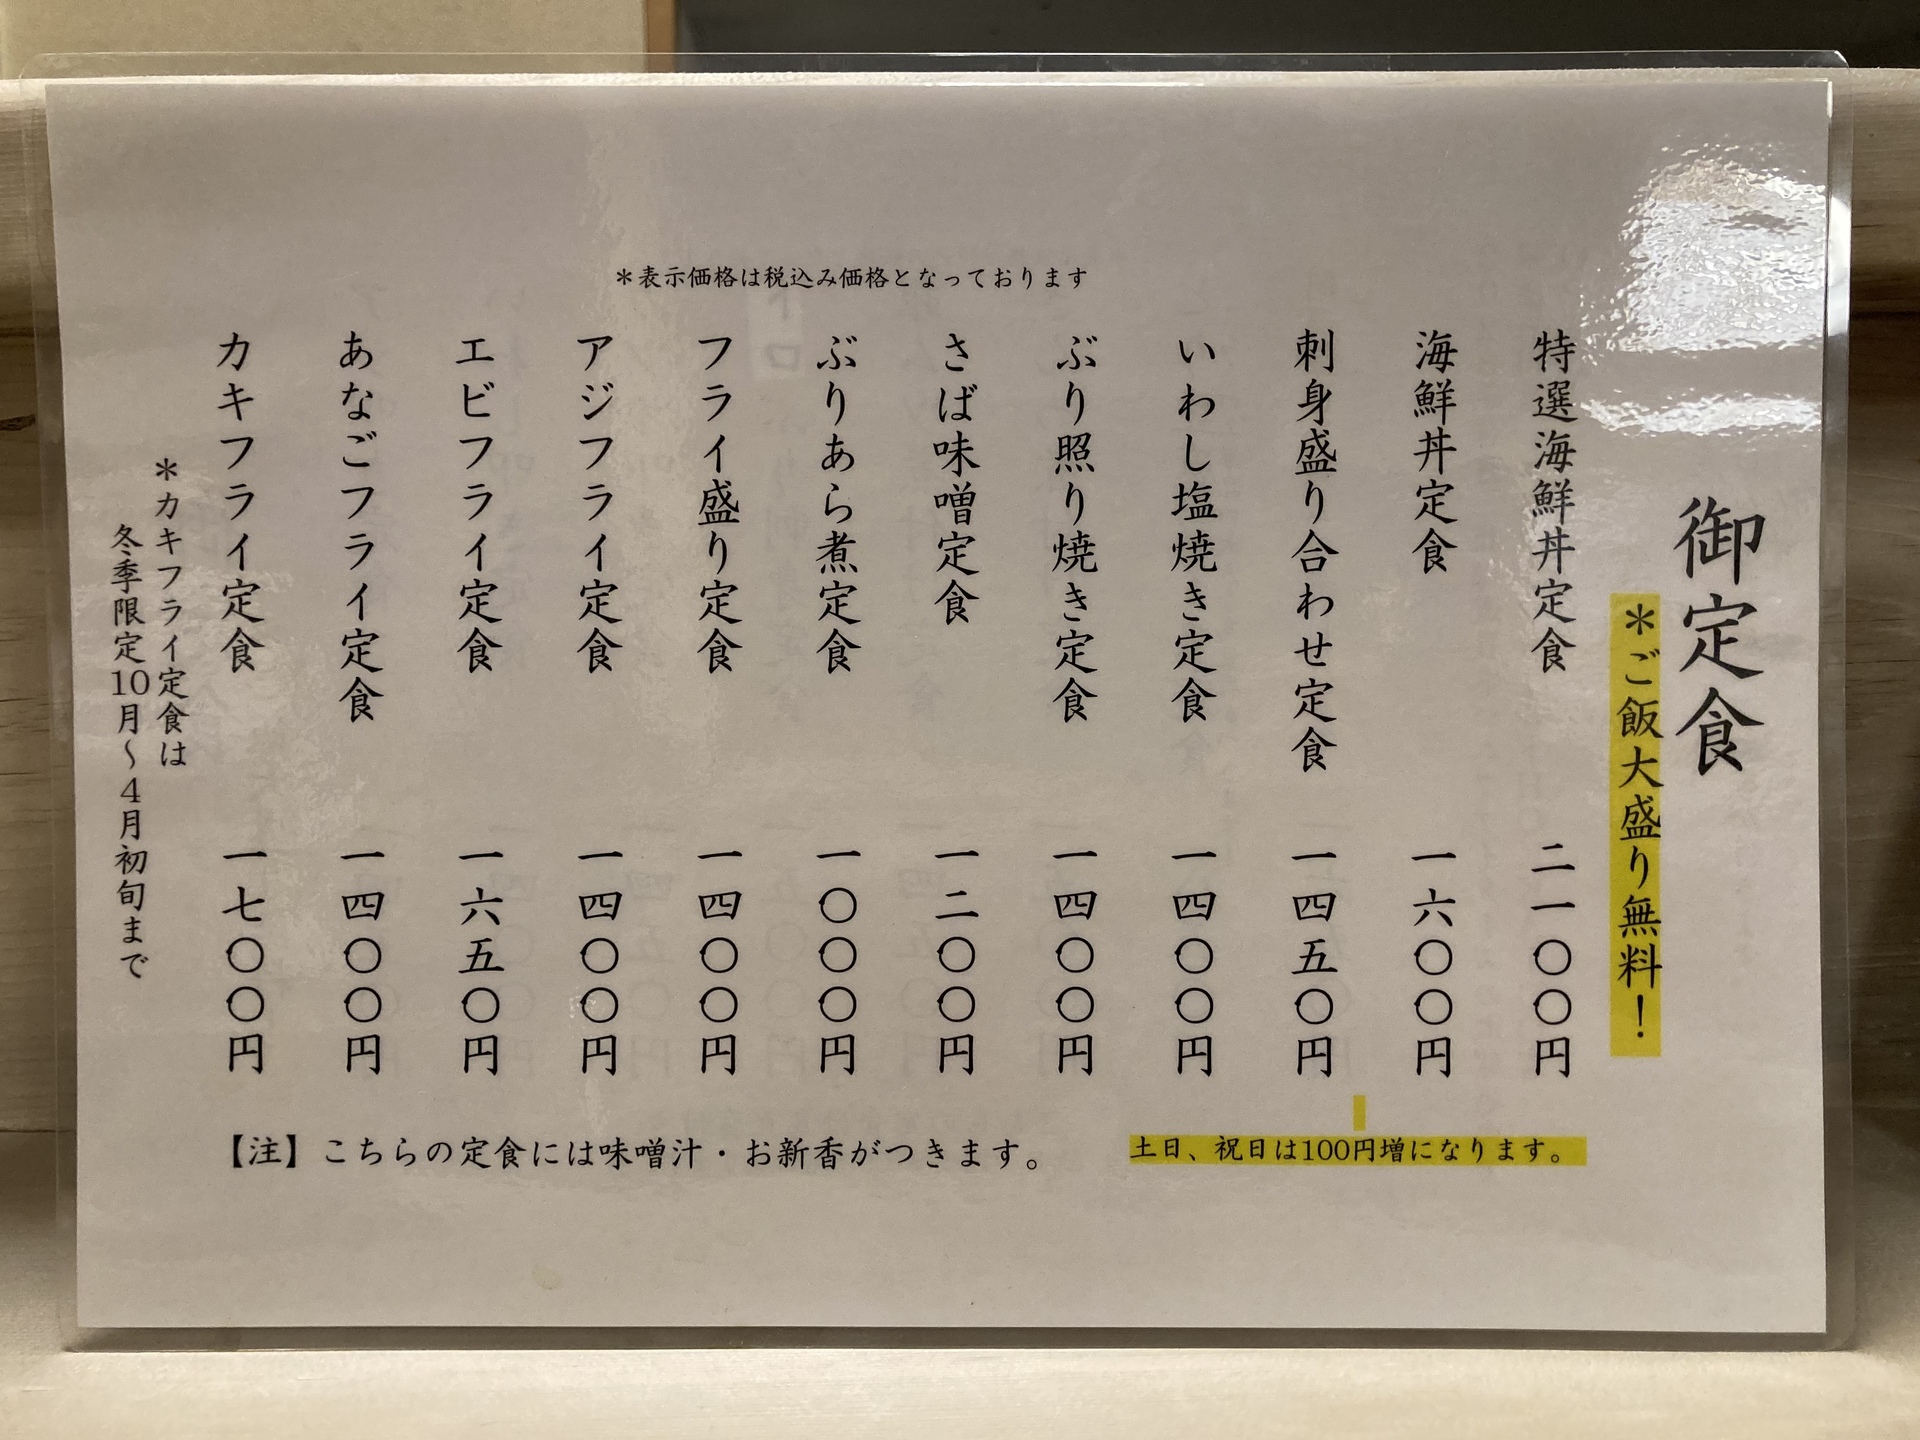 御定食
＊ご飯大盛り無料！
特選海鮮丼定食 二一〇〇円
海鮮丼定食 一六〇〇円
刺身盛り合わせ定食 一四五〇円
いわし塩焼き定食 一四〇〇円
ぶり照り焼き定食 一四〇〇円
さば味噌定食 一二〇〇円
ぶりあら煮定食 一〇〇〇円
フライ盛り定食 一四〇〇円
アジフライ定食 一四〇〇円
エビフライ定食 一六五〇円
あなごフライ定食 一四〇〇円
カキフライ定食 一七〇〇円
＊カキフライ定食は
冬季限定10月～4月初旬まで
＊表示価格は税込み価格となっております
土日、祝日は100円増になります。
【注】こちらの定食には味噌汁・お新香がつきます。